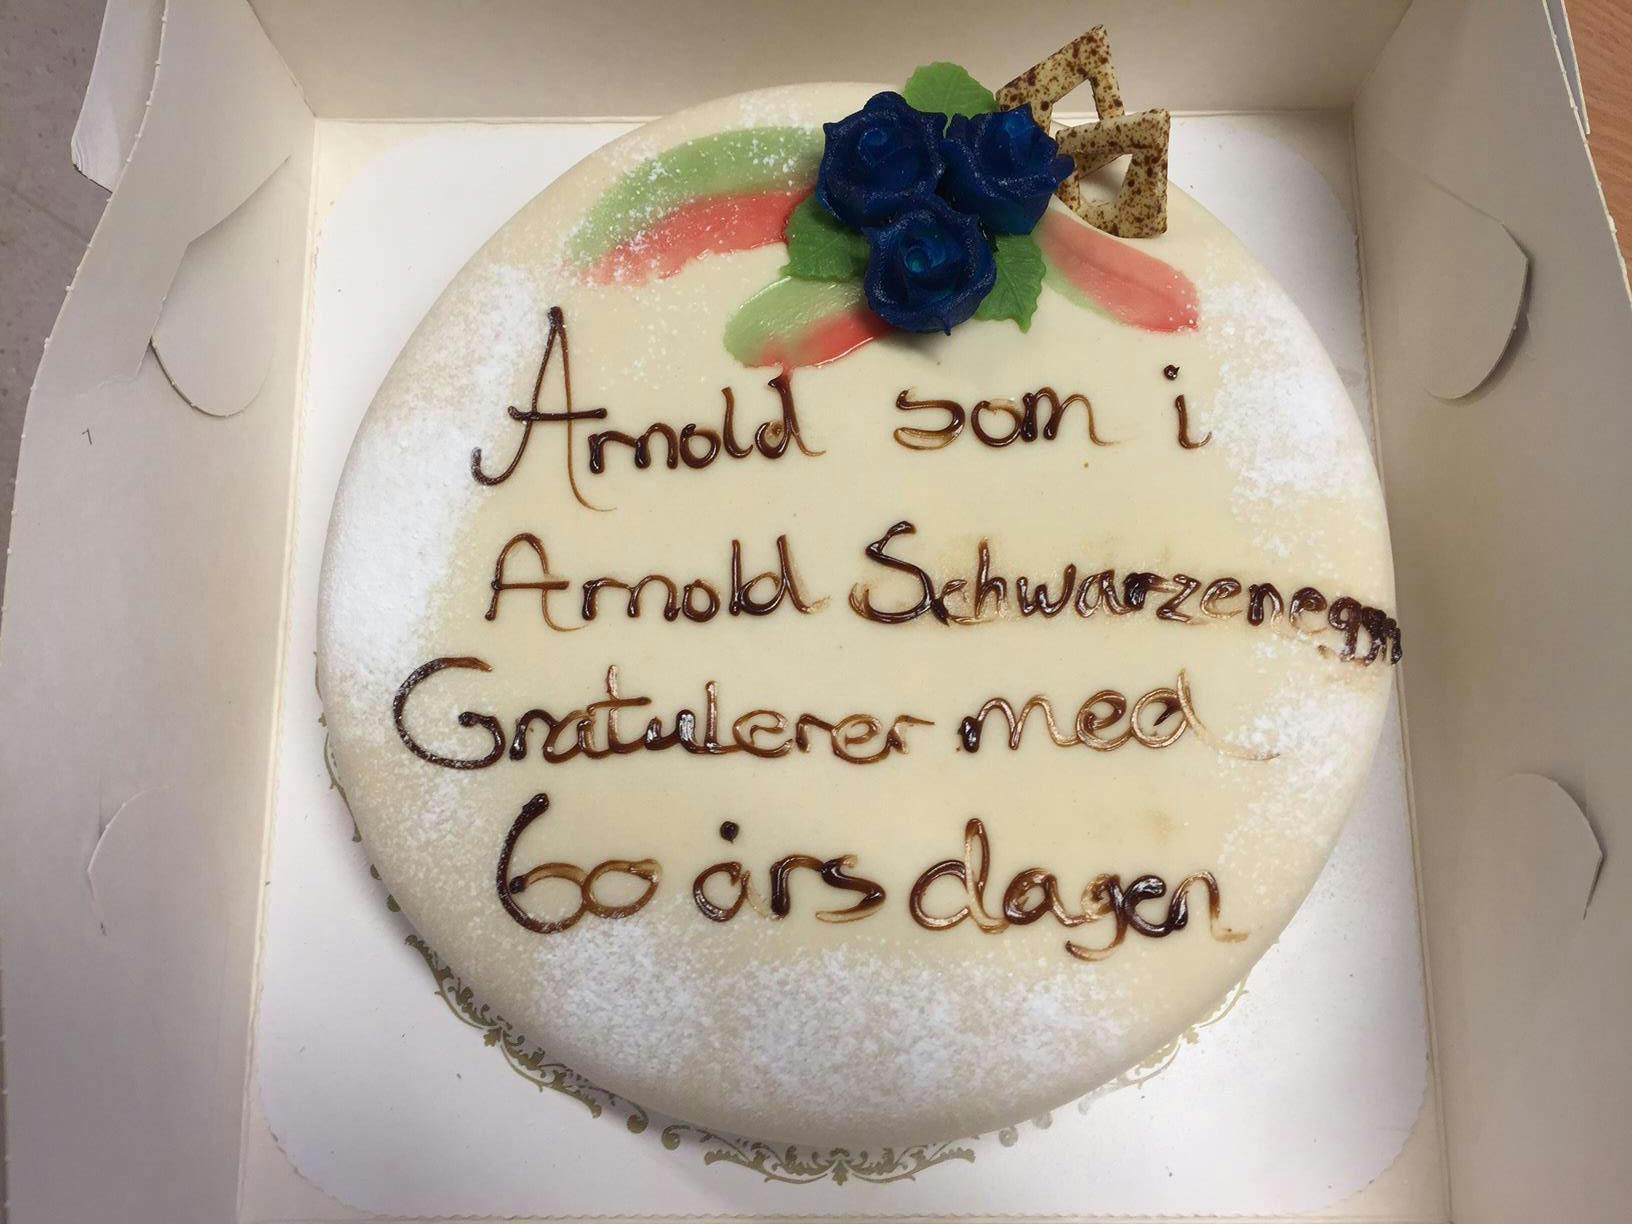 Arnold som i
Arnold Schwarzenegger
Gratulerer med
60 års dagen